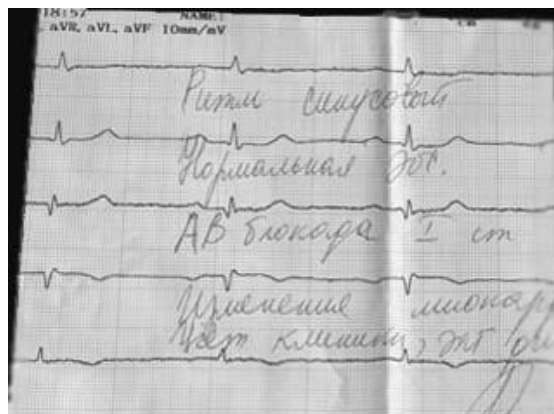 18:57 NAME:
, aVR, aVL, aVF 10mm/mV
Ритм синусовый
Нормальная ЭОС.
АВ блокада I ст
Изменения миокар
клиники, ЭКГ